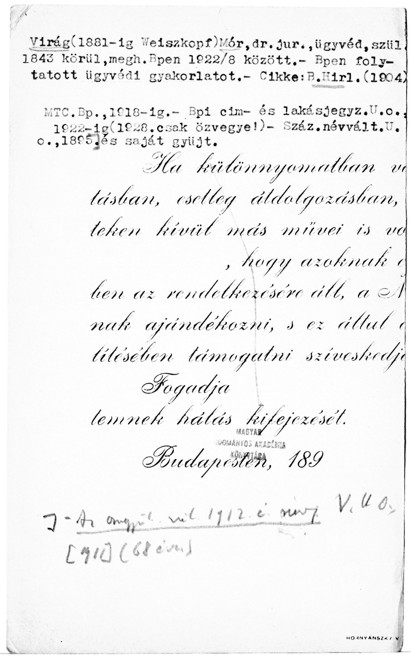 Virág(1881-ig Weiszkopf)Mór,dr.jur.,ügyvéd,szül.
1843 körül,megh.Bpen 1922/8 között.- Bpen foly-
tatott ügyvédi gyakorlatot.- Cikke:B.Hirl.(1904)
MTC.Bp.,1918-ig.- Bpi cim- és lakásjegyz.U.o.,
1922-ig(1928.csak özvegye!)- Száz.névvált.U.
o.,1895.és saját gyüjt.
Ha különnyomatban
tásban, esetleg átdolgozásban,
teken kívül más művei is
, hogy azoknak
ben az rendelkezésére áll, a
nak ajándékozni, s ez által
títésében támogatni szíveskedj
Fogadja
temnek hálás kifejezését.
MAGYAR
TUDOMÁNYOS AKADÉMIA
KÖNYVTÁRA
Budapesten, 189
Az 1912 V. U.O.
[911] (68 éves)
HORNYÁNSZKY V